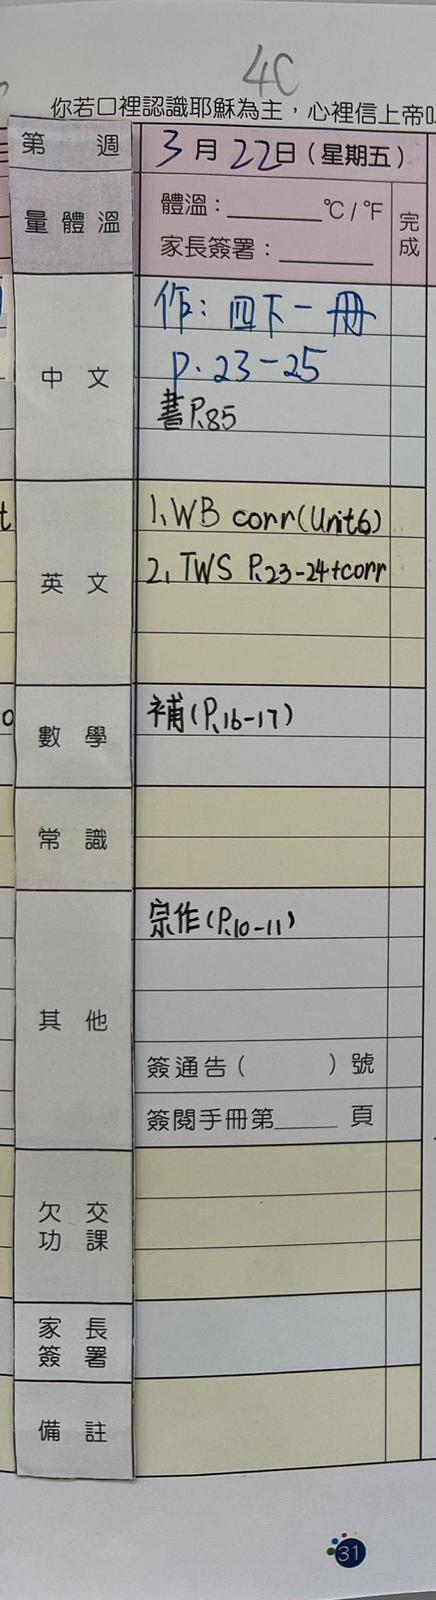 4C
你若口裡認識耶穌為主，心裡信上帝
第 週
3月22日(星期五)
量體溫
體溫：______℃/℉
家長簽署：______
完成
中文
作：四下一冊
P.23-25
書P.85
英文
1. WB corr(Unit6)
2. TWS P.23-24+corr
數學
補(P.16-17)
常識
其他
宗作(P.10-11)
簽通告( )號
簽閱手冊第____頁
欠交
功課
家長
簽署
備註
31